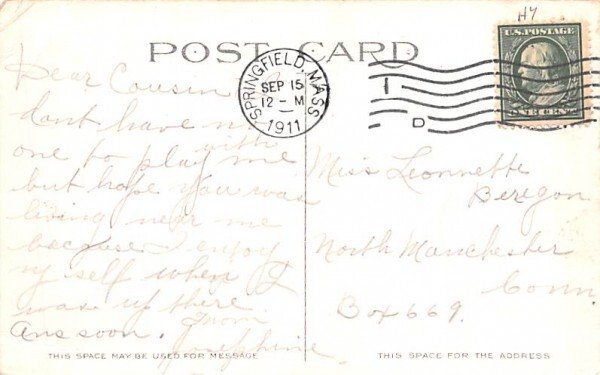 H7
U.S. POSTAGE
POST CARD
SPRINGFIELD, MASS.
SEP 15
12 - M
1911
I
D
ONE CENT
Dear Cousin
dont have no
one to play with me
but hope you was
living near me
because I enjoy
my self when I
was up there
Ans soon. From
Josephine
Miss Leonnette
Beregon
North Manchester
Conn
Box 669.
THIS SPACE MAY BE USED FOR MESSAGE
THIS SPACE FOR THE ADDRESS